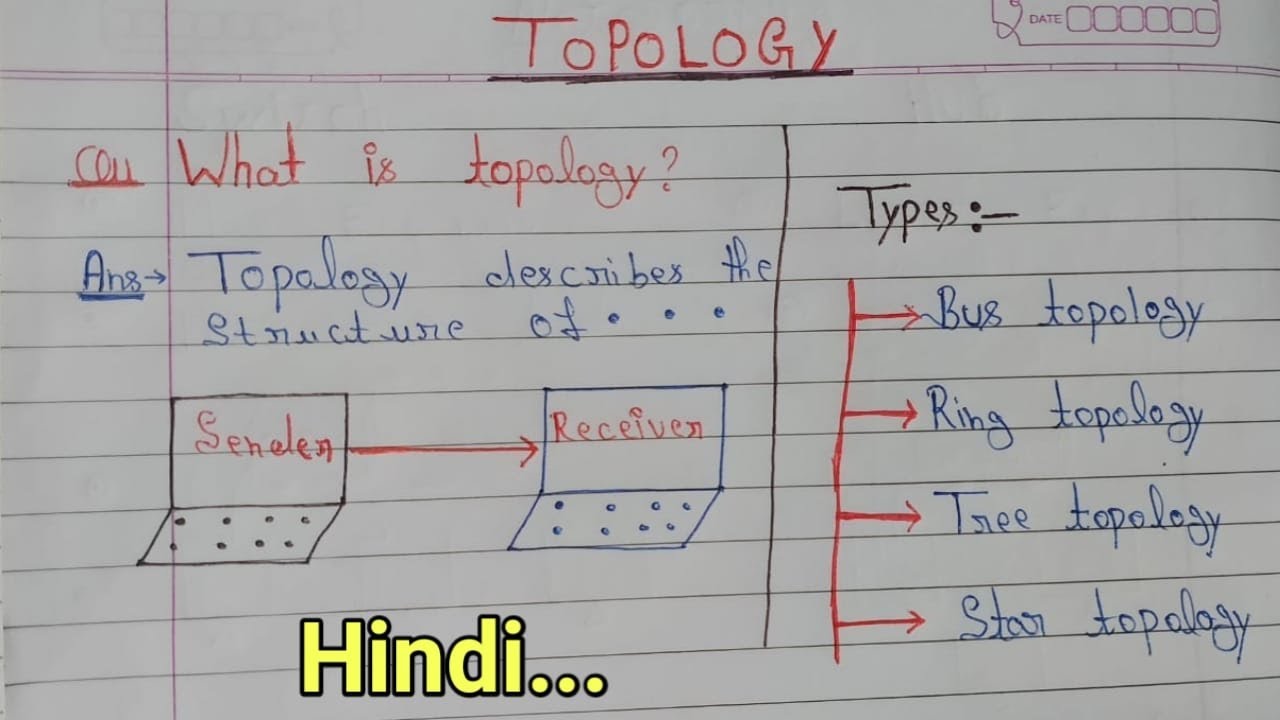 TOPOLOGY
DATE
Qu What is topology?
Ans→ Topology describes the
structure of . . .
Sender
Receiver
Types:-
Bus topology
Ring topology
Tree topology
Star topology
Hindi...